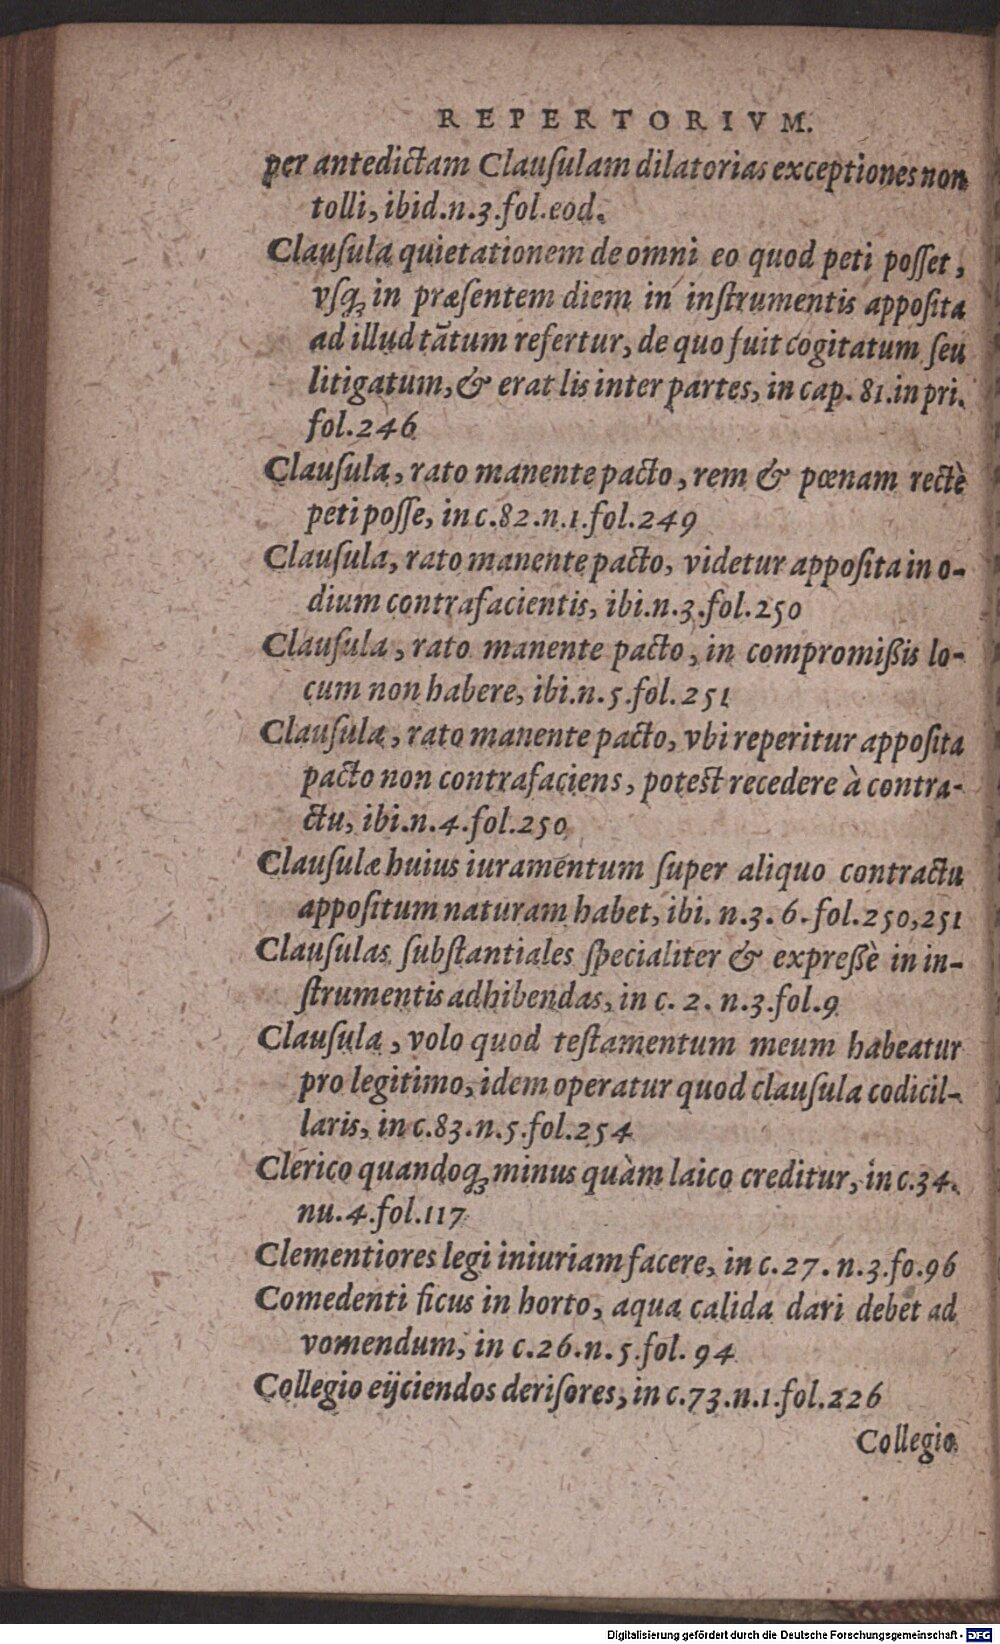 REPERTORIVM.
per antedictam Clauſulam dilatorias exceptiones non
tolli, ibid.n.3.fol.eod.
Clauſula quietationem de omni eo quod peti poſſet,
vſq; in præſentem diem in inſtrumentis appoſita
ad illud tātum refertur, de quo fuit cogitatum ſeu
litigatum, & erat lis inter partes, in cap. 81.in pri.
fol.246
Clauſula, rato manente pacto, rem & pœnam rectè
peti poſſe, in c.82.n.1.fol.249
Clauſula, rato manente pacto, videtur appoſita in o-
dium contrafacientis, ibi.n.3.fol.250
Clauſula, rato manente pacto, in compromißis lo-
cum non habere, ibi.n.5.fol.251
Clauſula, rato manente pacto, vbi reperitur appoſita
pacto non contrafaciens, poteſt recedere à contra-
ctu, ibi.n.4.fol.250
Clauſulæ huius iuramentum ſuper aliquo contractu
appoſitum naturam habet, ibi. n.3. 6.fol.250,251
Clauſulas ſubſtantiales ſpecialiter & expreßè in in-
ſtrumentis adhibendas, in c. 2. n.3.fol.9
Clauſula, volo quod teſtamentum meum habeatur
pro legitimo, idem operatur quod clauſula codicil-
laris, in c.83.n.5.fol.254
Clerico quandoq; minus quàm laico creditur, in c.34.
nu.4.fol.117
Clementiores legi iniuriam facere, in c.27.n.3.fo.96
Comedenti ficus in horto, aqua calida dari debet ad
vomendum, in c.26.n.5.fol. 94
Collegio eijciendos deriſores, in c.73.n.1.fol.226
Collegio
Digitalisierung gefördert durch die Deutsche Forschungsgemeinschaft - DFG